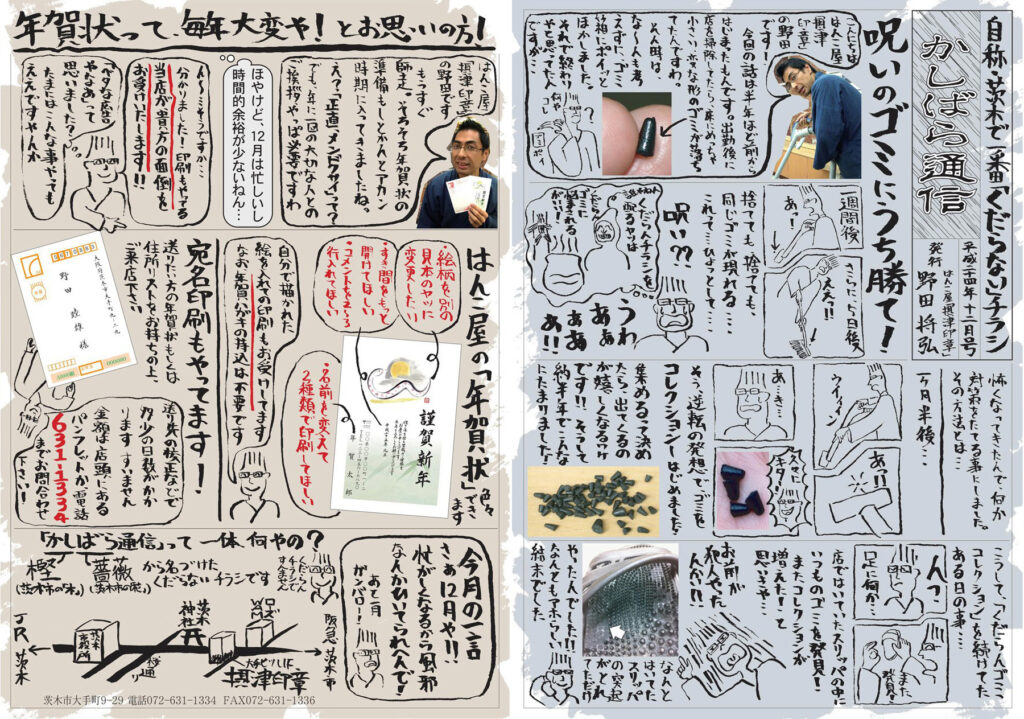 自称・茨木で一番「くだらない」チラシ
かしばら通信
平成二十四年十二月号
はんこ屋「摂津印章」
発行 野田将弘
呪いのゴミにうち勝て!
こんにちは
摂津
「印章」
の野田
です!
今回の話は半年ほど前から
はじまったもんです。出勤後に
店を掃除してたら、床にめっちゃ
小さい変な形のゴミが落ち
てたんですわ。
そん時は、
な〜んも考
えずに、ゴミ
箱にポイッと
ほかしました。
それで終わり
やと思ってた
んですが…
一週間後
あっ!
さらに5日後
ええっ!!
捨てても、捨てても、
同じゴミが現れる…
これって…ひょっとして…
呪い??
くだらんチラシを
配るヤツは
うわ
あぁ
あぁ
あぁ
!!
怖くなってきたんで、何か
対策をたてる事にしました。
その方法とは…
一ヶ月半後…
あっ!!
あ・き…
そう、逆転の発想でゴミを
コレクションしはじめました。
集めるって決め
たら、出てくるの
が嬉しくなるワケ
です!!そうして
約半年でこんな
にたまりました!
こうして、「くだらんゴミ
コレクション」を続けてた
ある日の事…
んっ
足に何か…
店ではいていたスリッパの中に
いつものゴミを発見!
またコレクションが
増えた!と
思いきや…
また
発見!
お前が
犯人やった
んか!!
やったんでした!!
なんともアホらしい
結末でした。
なんと
はいてた
スリッパ
の突起
がとれ
てただけ
年賀状って、毎年大変や!とお思いの方!
はんこ屋
「摂津印章」
の野田です!
もうすぐ
師走。そろそろ年賀状の
準備もしとかんとアカン
時期に入ってきましたね。
え?正直「メンドクサイ」って?
でも、年に一回の大切な人との
ご挨拶。やっぱ必要ですわ
ほやけど、12月は忙しいし
時間的余裕が少ないねん…
ん〜…そうですか…
分かりました!印刷もやってる
当店が貴方の面倒を
お受けいたします!!
「ヘタな広告
やなぁ」って
思いました?
たまにはこんな事やっても
ええですやんか
はんこ屋の「年賀状」
色々
できます
・絵柄を別の
見本のヤツに
変更したい
・すき間をもっと
開けてほしい
・コメントを2〜3
行入れてほしい
・名前を変えて
2種類で印刷してほしい
謹賀新年
年賀太郎
自分で描かれた
絵を入れての印刷もお受けしてます
なお年賀ハガキの持込は不要です
宛名印刷もやってます!
送りたい方の年賀状もしくは
住所リストをお持ちの上、
ご来店下さい
野田 睦 様
送り先の校正などで
多少の日数がかか
ります すいません
金額は店頭にある
パンフレットか電話
631-1334
までお問合わせ
下さい!
「かしばら通信」って一体、何やの?
樫(茨木市の「木」)
薔薇(茨木市の「花」)
から名づけた
くだらないチラシです
JR
茨木
茨木
市役所
茨木
神社
阪急
茨木市
摂津印章
茨木市大手町9-29 電話072-631-1334 FAX072-631-1336
今月の一言
さぁ12月や!!
忙がしくなるから風邪
なんかひいてられへんで!
あと一月
ガンバロー!